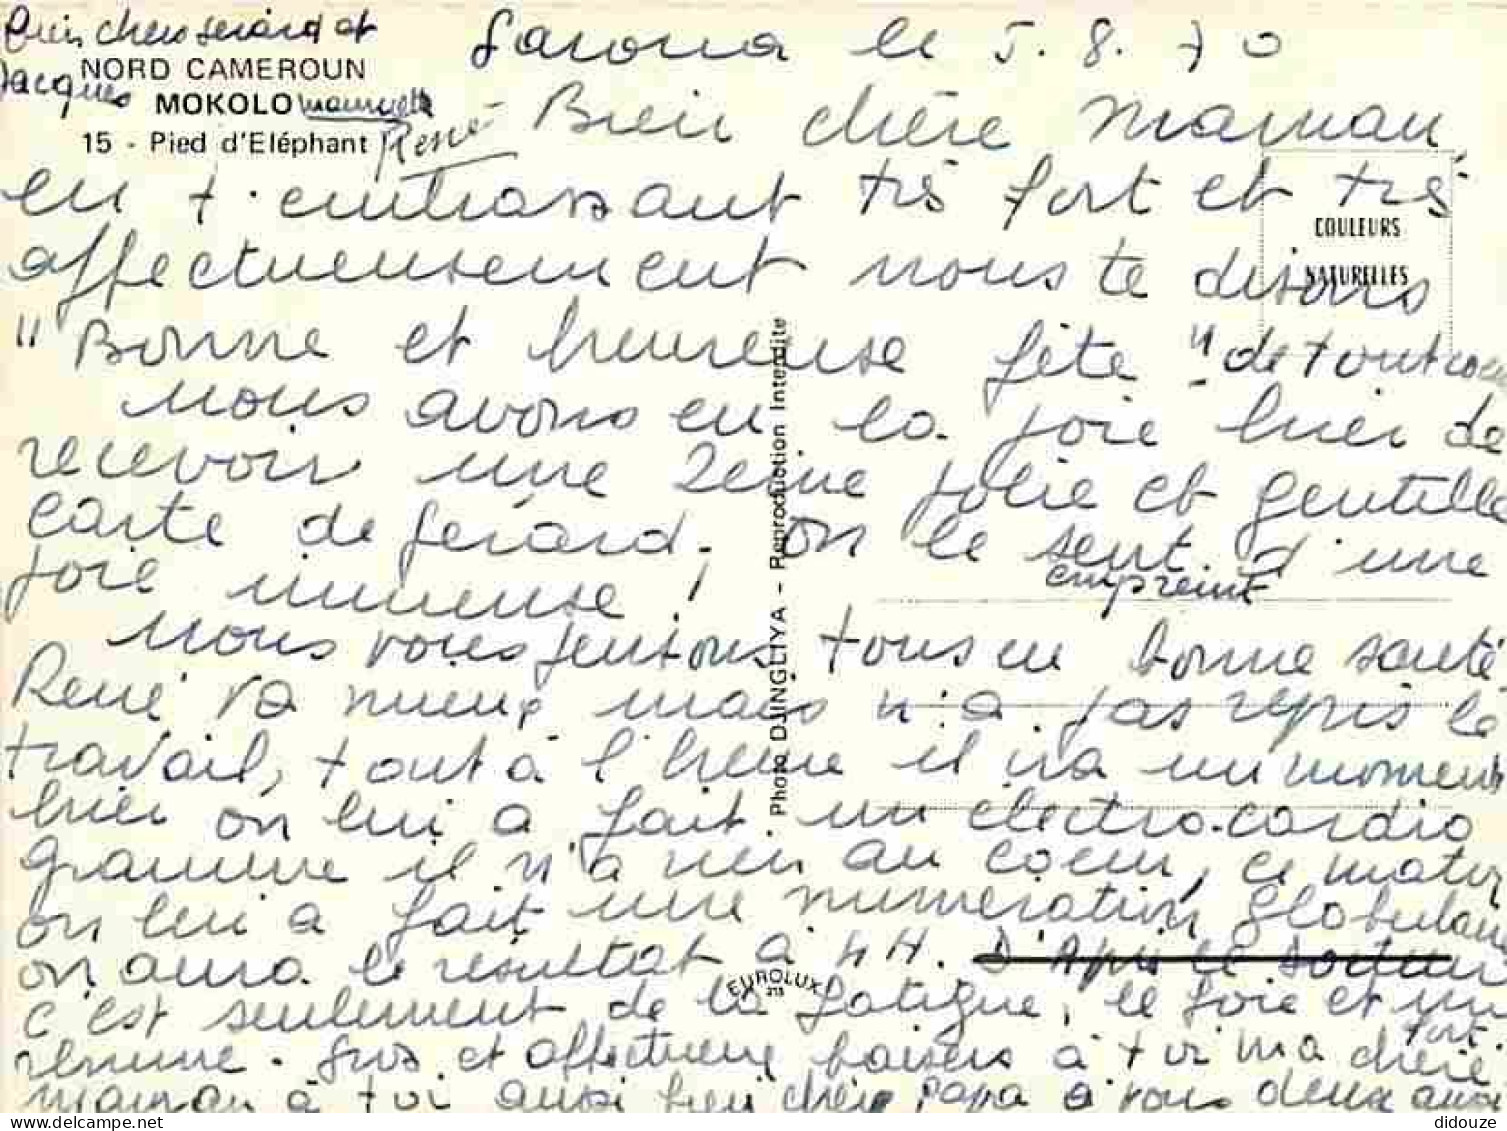 bien chers Gérard et
Jacques
NORD CAMEROUN
MOKOLO
15 - Pied d'Eléphant
René
Garoua le 5.8.70
Bien chère maman,
en t'embrassant très fort et très
affectueusement nous te disons
"Bonne et heureuse fête" de tout coeur
nous avons eu la joie hier de
recevoir une 2ème jolie et gentille
carte de Gérard. on le sent d'une
empreint
joie immense !
nous vous sentons tous en bonne santé
René va mieux mais n'a pas repris le
travail, tout à l'heure il ira un moment
hier on lui a fait un électro-cardio
gramme il n'a rien au coeur, ce matin
on lui a fait une numération globulaire
on aura le résultat à 4H. D'Après le docteur
c'est seulement de la fatigue, le foie et un
fort
rhume. Gros et affectueux baisers à toi ma chère
maman à toi aussi bien cher Papa à vous deux aussi
COULEURS
NATURELLES
Photo DJINGLIYA - Reproduction Interdite
EUROLUX
didouze